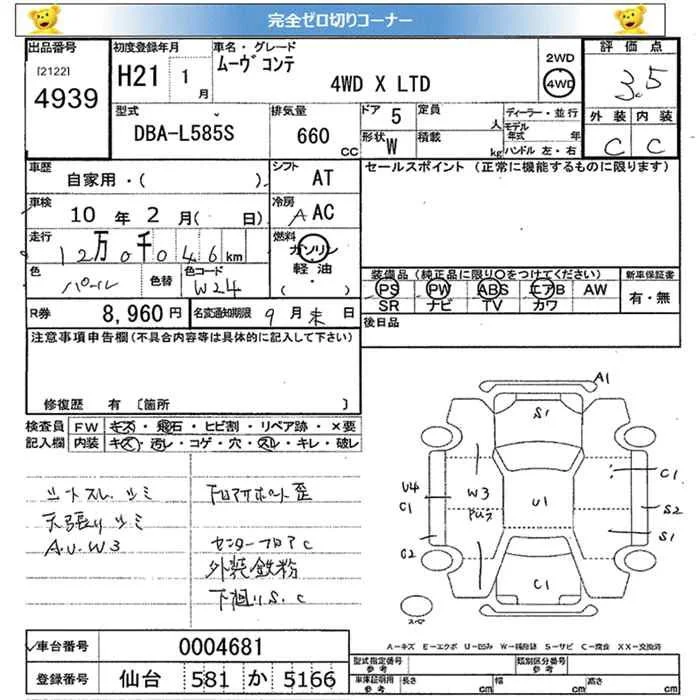 完全ゼロ切りコーナー
出品番号
[2122]
4939
初度登録年月
H21 1月
車名・グレード
ムーヴ コンテ
4WD X LTD
2WD
4WD
評価点
3.5
外装 内装
C C
型式
DBA-L585S
排気量
660 cc
ドア 5
形状 W
定員 人
積載 kg
ディーラー・並行
モデル年式 年
ハンドル 左・右
車歴
自家用・( )
シフト
AT
車検
10年 2月( 日)
冷房
A AC
走行
12万0千046km
燃料
ガソリン
軽油・
( )
色
パール
色替
色コード
W24
R券 8,960円
名変通知期限 9月末日
セールスポイント(正常に機能するものに限ります)
装備品(純正品に限り○をつけてください)
新車保証書
PS PW ABS エアB AW
SR ナビ TV カワ
有・無
後日品
注意事項申告欄(不具合内容等は具体的に記入して下さい)
修復歴 有 〔箇所 〕
検査員
記入欄
FW キズ・飛石・ヒビ割・リペア跡・×要
内装 キズ・汚レ・コゲ・穴・スレ・キレ・破レ
シートスレ、シミ
天張りシミ
A.U.W3
センターフロアC
外装鉄粉
下廻りS.C
A1
S1
C1
U4
C1
W3
U1
S2
S1
C2
C1
スペア
A-キズ E-エクボ U-凹み W-補修跡 S-サビ C-腐食 XX-交換済
車台番号 0004681
登録番号 仙台 581 か 5166
型式指定番号
参考
類別区分番号
参考
車庫証明用
参考
長さ cm
幅 cm
高さ cm